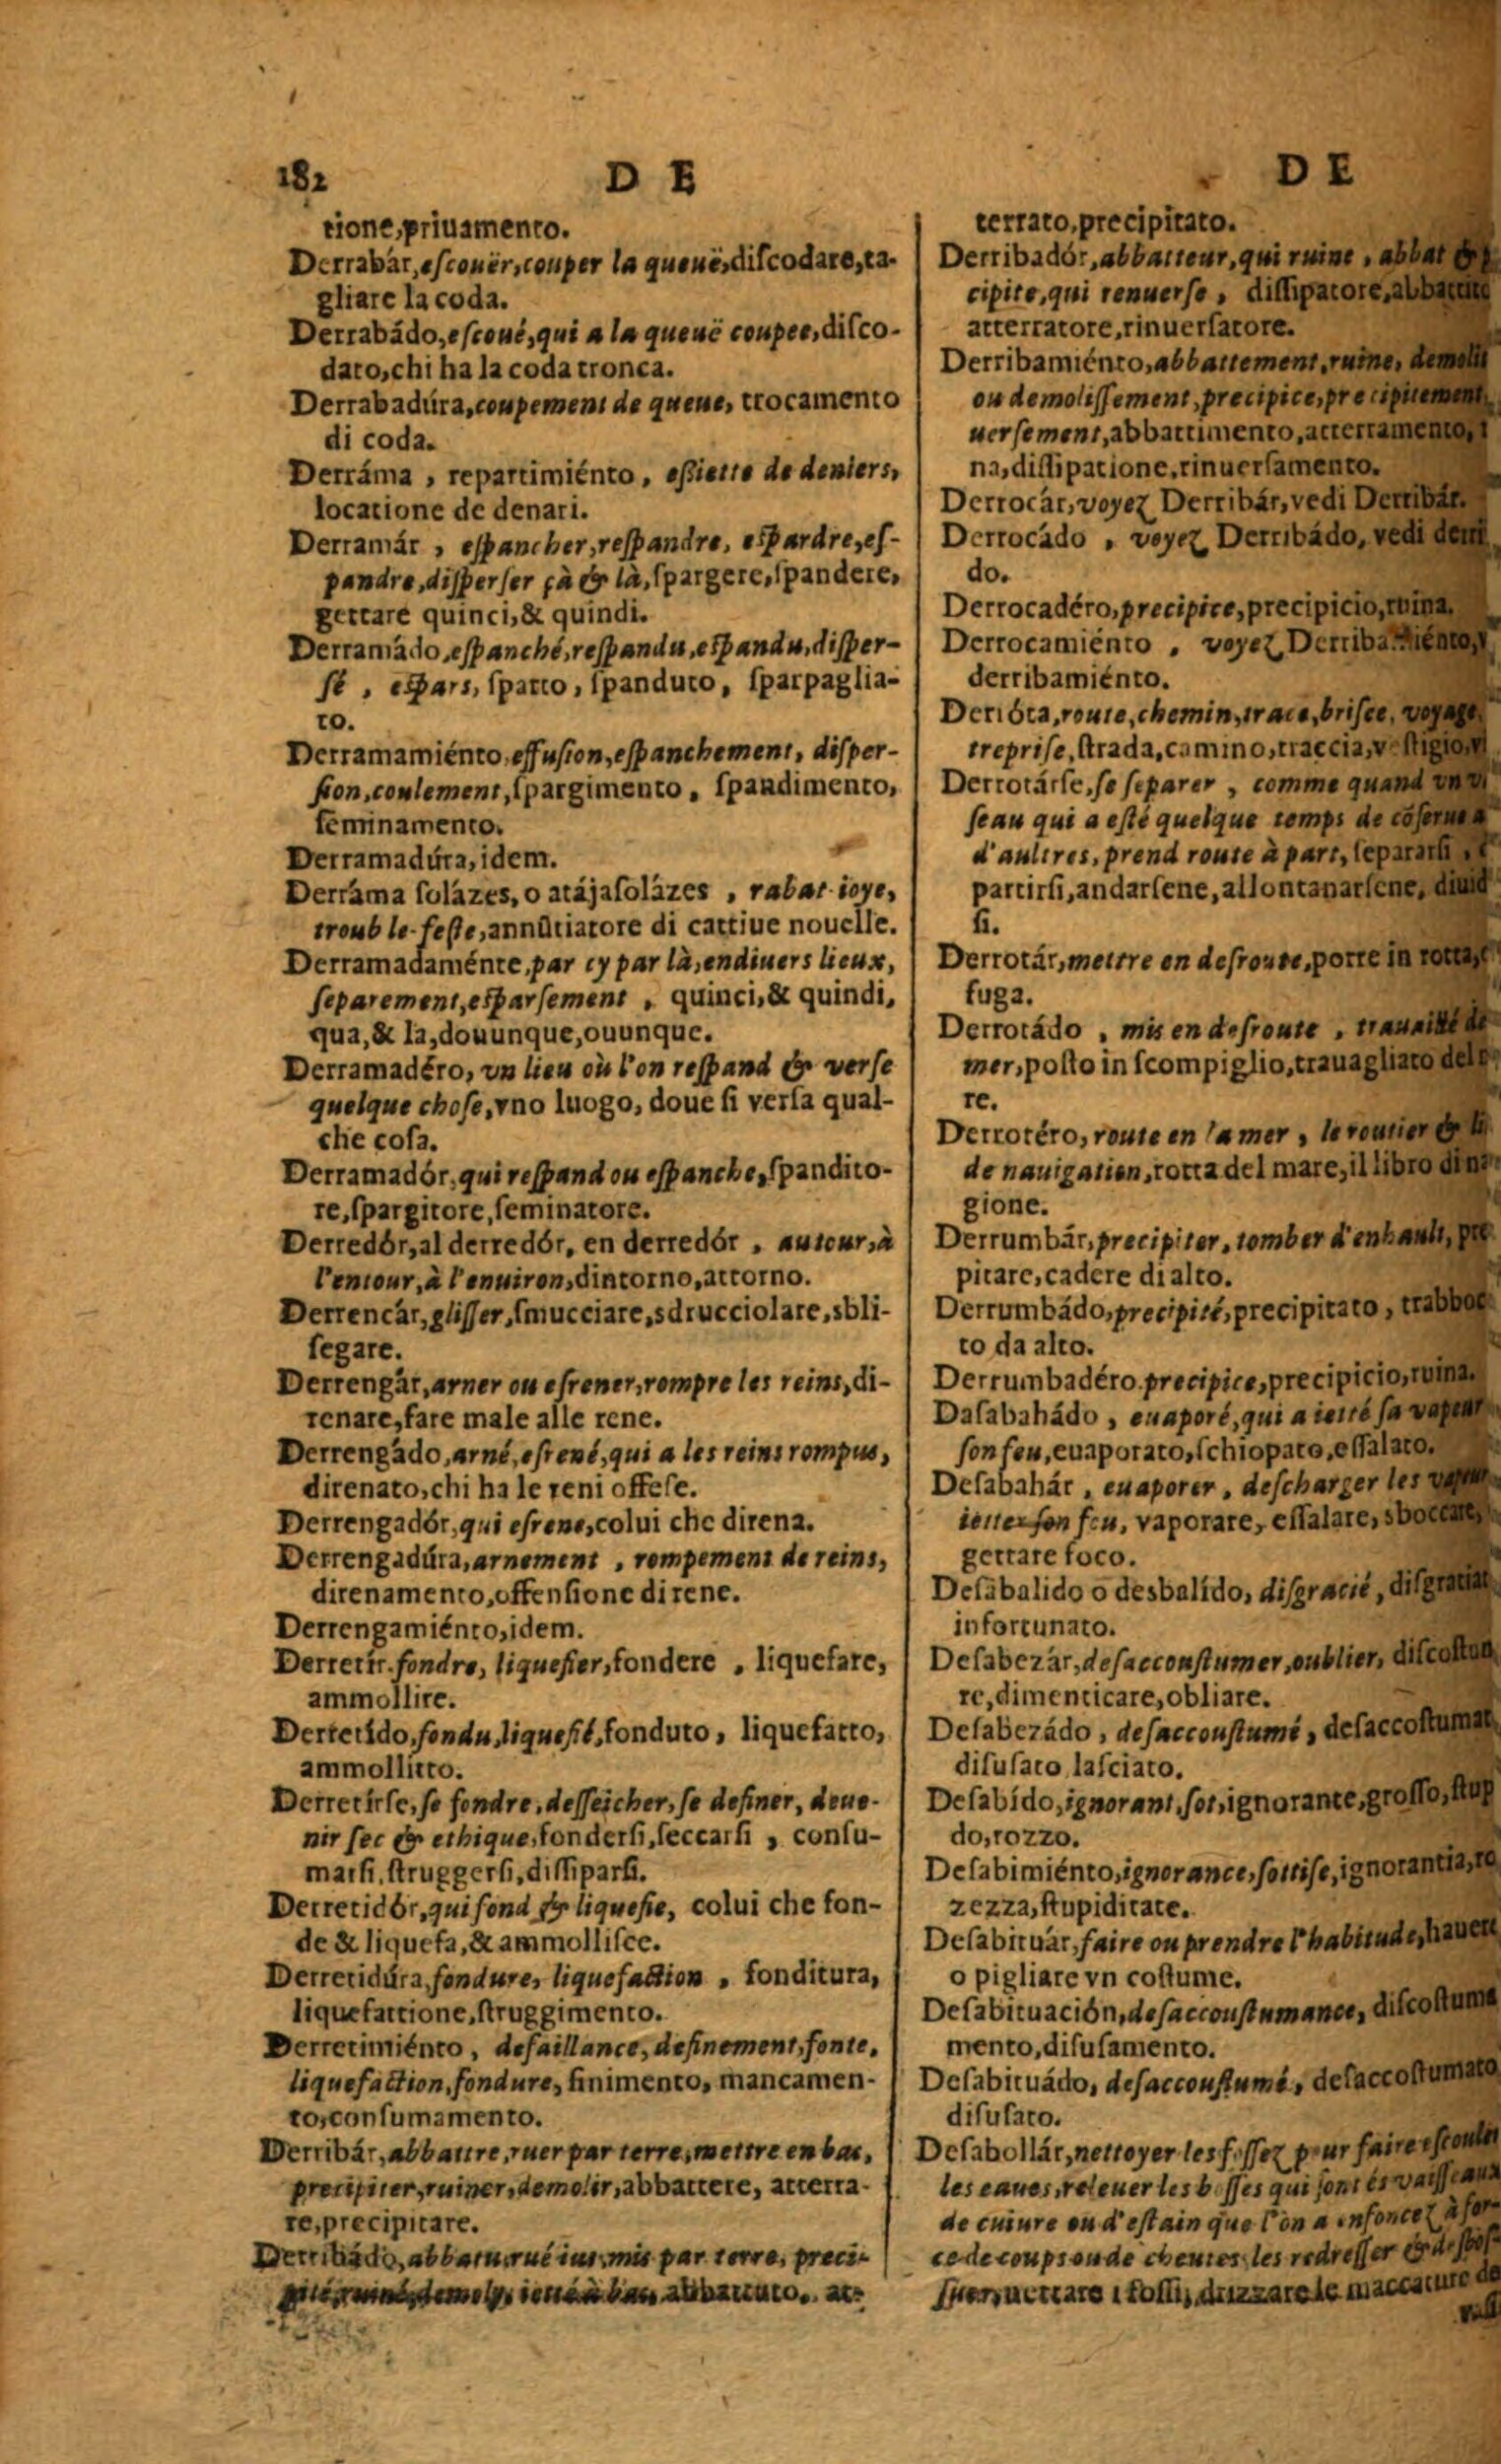 182
D E
tione,priuamento.
Derrabár,eſcouër,couper la queuë,diſcodare,ta-
gliare la coda.
Derrabádo,eſcoué,qui a la queuë coupee,diſco-
dato,chi ha la coda tronca.
Derrabadúra,coupement de queue, trocamento
di coda.
Derráma , repartimiénto , eſsiette de deniers,
locatione de denari.
Derramár , eſpancher,reſpandre, eſpardre,eſ-
pandre,diſperſer çà & là,ſpargere,ſpandere,
gettare quinci,& quindi.
Derramádo,eſpanché,reſpandu,eſpandu,diſper-
ſé , eſpars, ſparto, ſpanduto, ſparpaglia-
to.
Derramamiénto,effuſion,eſpanchement, diſper-
ſion,coulement,ſpargimento, ſpandimento,
ſeminamento.
Derramadúra,idem.
Derráma ſolázes, o atájaſolázes , rabat-ioye,
trouble-feſte,annũtiatore di cattiue nouelle.
Derramadaménte,par cy par là,endiuers lieux,
ſeparement,eſparſement , quinci,& quindi,
qua,& la,douunque,ouunque.
Derramadéro, vn lieu où l'on reſpand & verſe
quelque choſe,vno luogo, doue ſi verſa qual-
che coſa.
Derramadór,qui reſpand ou eſpanche,ſpandito-
re,ſpargitore,ſeminatore.
Derredór,al derredór, en derredór , autour,à
l'entour,à l'enuiron,dintorno,attorno.
Derrencár,gliſſer,ſmucciare,sdrucciolare,sbli-
ſegare.
Derrengár,arner ou eſrener,rompre les reins,di-
renare,fare male alle rene.
Derrengádo,arné,eſrené,qui a les reins rompus,
direnato,chi ha le reni offeſe.
Derrengadór,qui eſrene,colui che direna.
Derrengadúra,arnement , rompement de reins,
direnamento,offenſione di rene.
Derrengamiénto,idem.
Derretír.fondre, liquefier,fondere , liquefare,
ammollire.
Derretído,fondu,liquefié,fonduto, liquefatto,
ammollitto.
Derretírſe,ſe fondre,deſſeicher,ſe definer, deue-
nir ſec & ethique,fonderſi,ſeccarſi , conſu-
marſi,ſtruggerſi,diſſiparſi.
Derretidór,qui fond & liquefie, colui che fon-
de & liquefa,& ammolliſce.
Derretidúra,fondure, liquefaction , fonditura,
liquefattione,ſtruggimento.
Derretimiénto, defaillance, definement,fonte,
liquefaction,fondure, finimento, mancamen-
to,conſumamento.
Derribár,abbattre,ruer par terre,mettre en bas,
precipiter,ruiner,demolir,abbattere, atterra-
re,precipitare.
Derribádo,abbatu,rué ius,mis par terre, preci-
pité,ruiné,demoly, ietté à bas, abbattuto, at-
D E
terrato,precipitato.
Derribadór,abbatteur,qui ruine , abbat &
cipite,qui renuerſe , diſſipatore,abbattito
atterratore,rinuerſatore.
Derribamiénto,abbattement,ruine, demolit
ou demoliſſement,precipice,precipitement,
uerſement,abbattimento,atterramento,
na,diſſipatione,rinuerſamento.
Derrocár,voyez Derribár,vedi Derribár.
Derrocádo , voyez Derribádo, vedi derri
do.
Derrocadéro,precipice,precipicio,ruina.
Derrocamiénto , voyez Derribamiénto,v
derribamiénto.
Derróta,route,chemin,trace,briſee, voyage,
trepriſe,ſtrada,camino,traccia,veſtigio,vi
Derrotárſe,ſe ſeparer , comme quand vn vi
ſeau qui a eſté quelque temps de cõſerue a
d'aultres, prend route à part, ſepararſi ,
partirſi,andarſene,allontanarſene, diuid
ſi.
Derrotár,mettre en deſroute,porre in rotta,
fuga.
Derrotádo , mis en deſroute , trauaillé de
mer,poſto in ſcompiglio,trauagliato del
re.
Derrotéro, route en la mer , le routier & li
de nauigation,rotta del mare,il libro di na
gione.
Derrumbár,precipiter, tomber d'enhault, pre
pitare,cadere di alto.
Derrumbádo,precipité,precipitato , trabboc
to da alto.
Derrumbadéro.precipice,precipicio,ruina.
Daſabahádo , euaporé,qui a ietté ſa vapeur
ſon feu,euaporato,ſchiopato,eſſalato.
Deſabahár , euaporer , deſcharger les vapeur
ietter ſon feu, vaporare, eſſalare, sboccare,
gettare foco.
Deſabalido o desbalído, diſgracié , diſgratiat
infortunato.
Deſabezár,deſaccouſtumer,oublier, diſcoſtum
re,dimenticare,obliare.
Deſabezádo , deſaccouſtumé , deſaccoſtumat
diſuſato laſciato.
Deſabído,ignorant,ſot,ignorante,groſſo,ſtup
do,rozzo.
Deſabimiénto,ignorance,ſottiſe,ignorantia,ro
zezza,ſtupiditate.
Deſabituár,faire ou prendre l'habitude,hauere
o pigliare vn coſtume.
Deſabituación,deſaccouſtumance, diſcoſtuma
mento,diſuſamento.
Deſabituádo, deſaccouſtumé, deſaccoſtumato
diſuſato.
Deſabollár,nettoyer les foſſez pour faire eſcouler
les eaues,releuer les boſſes qui ſont és vaiſſeaux
de cuiure ou d'eſtain que l'on a enfoncez à for-
ce de coups ou de cheutes les redreſſer & deſboſ-
ſuer,nettare i foſſi, drizzare le maccature de
vaſſi